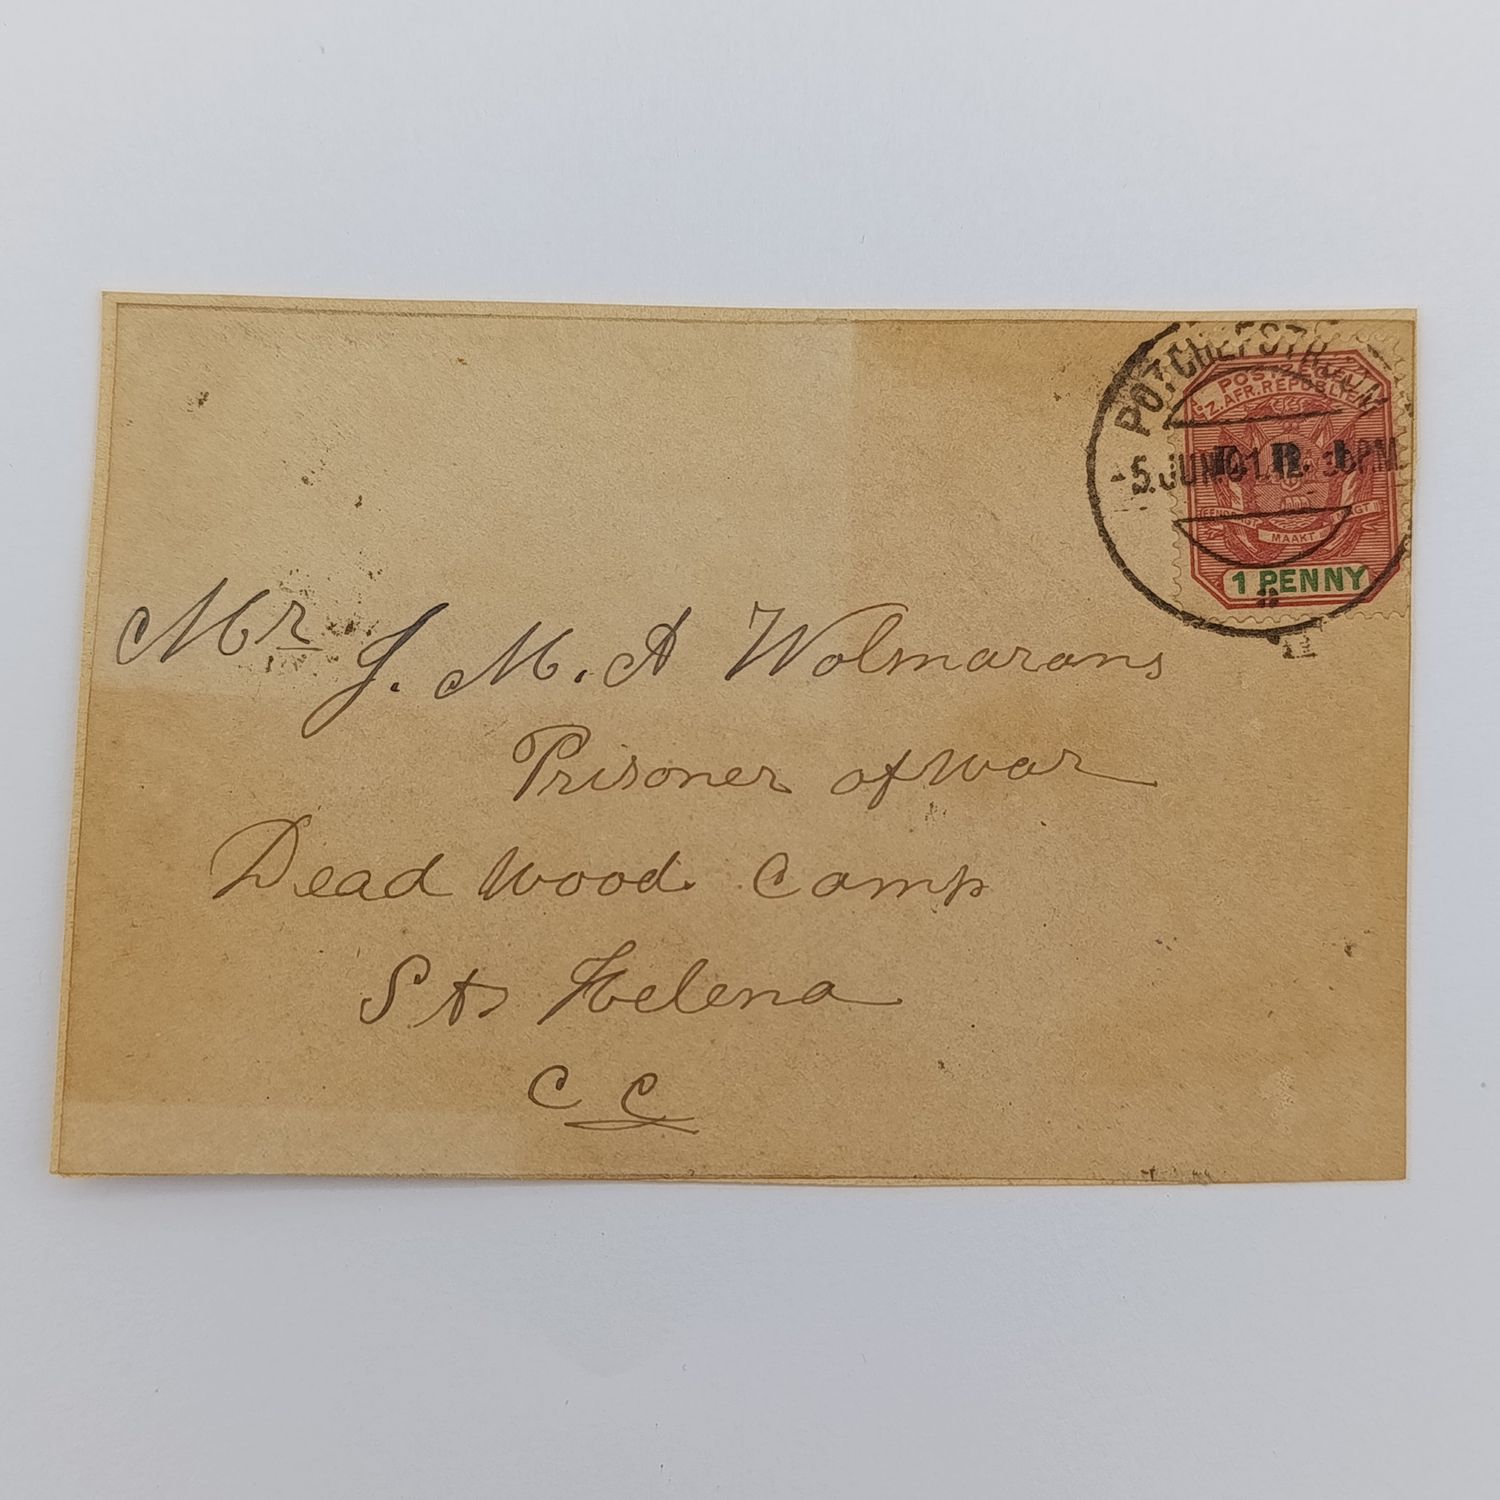 POTCHEFSTROOM
POSTZEGEL
Z. AFR. REPUBLIEK
-5.JUN.01. 12. 30PM
E. R. I.
EENDRAGT MAAKT MAGT
1 PENNY
Mr J. M. A Wolmarans
Prisoner of war
Dead wood Camp
St Helena
C C